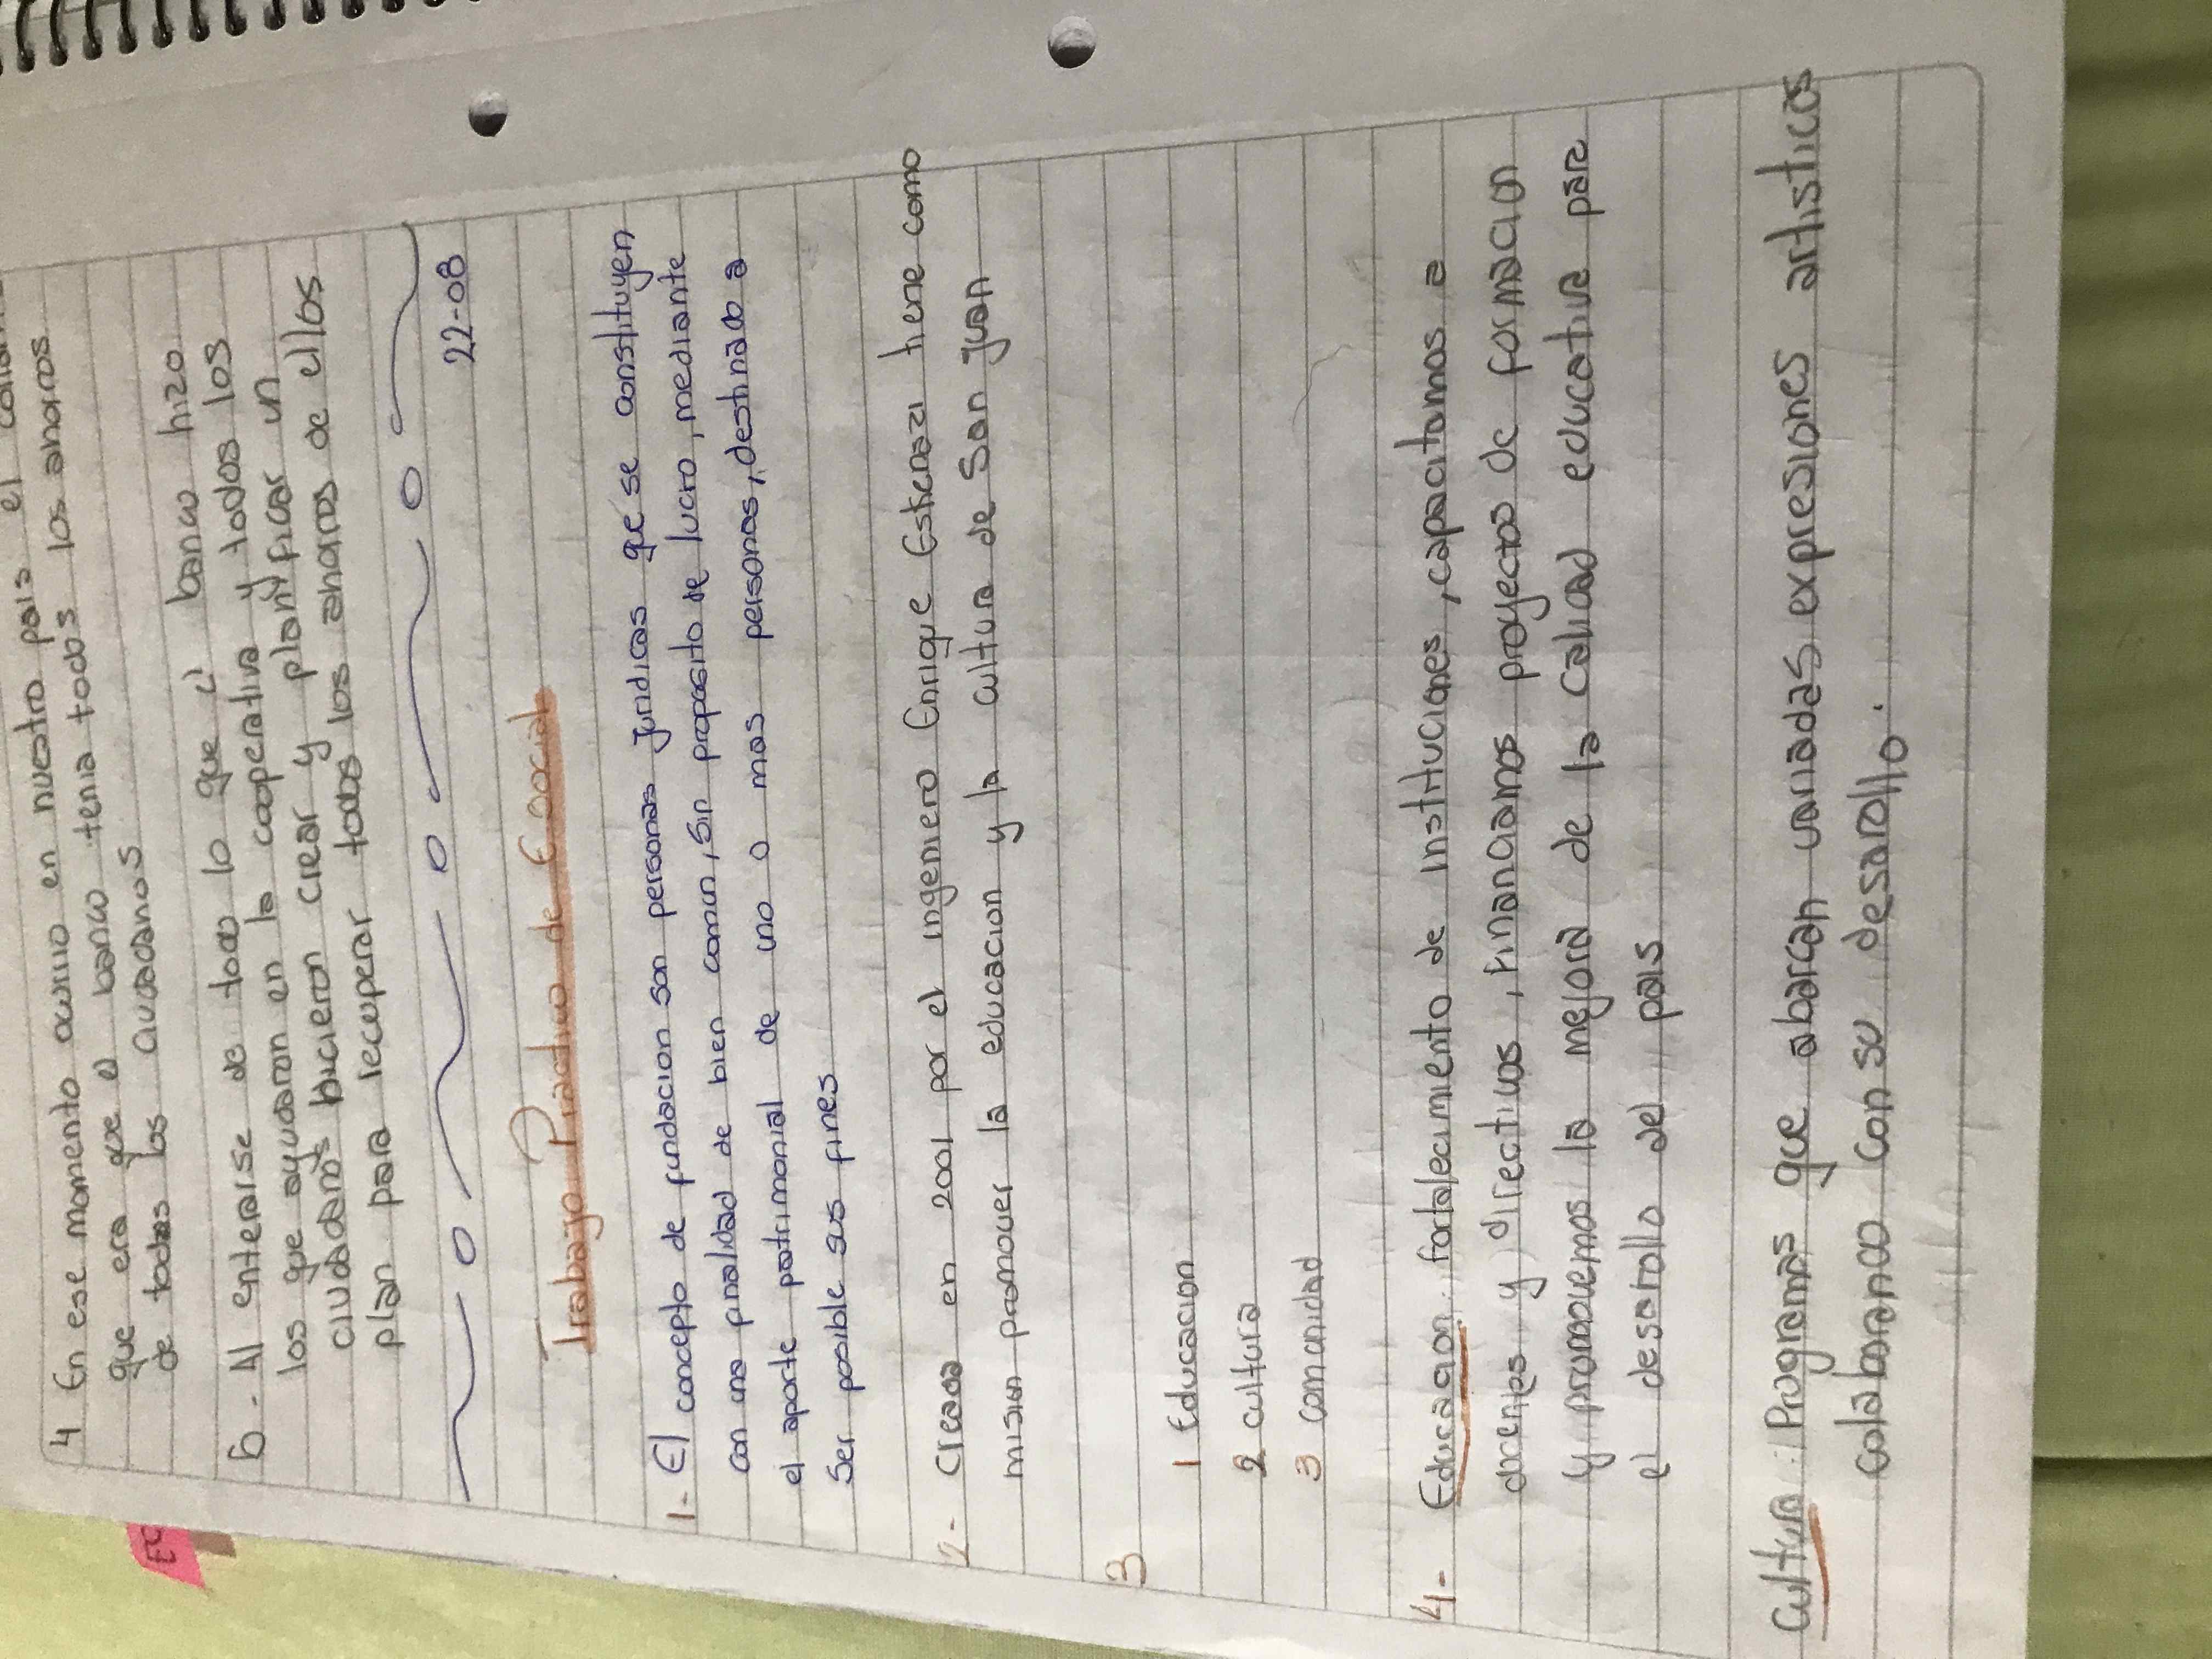 4 En ese momento ocurrio en nuestro pais el
que era que el banco tenia todos los ahorros
de todos los ciudadanos
6 - Al enterarse de todo lo que el banco hizo
los que ayudaron en la cooperativa y todos los
ciudadanos hicieron crear y planificar un
plan para recuperar todos los ahorros de ellos
22-08
Trabajo Practivo de E.social
1- El concepto de fundacion son personas juridicas que se constituyen
con una finalidad de bien comun, sin proposito de lucro, mediante
el aporte patrimonial de uno o mas personas, destinado a
Ser posible sus fines
2- Creada en 2001 por el ingeniero Enrique Estierazi tiene como
mision promover la educacion y la cultura de San Juan
3
1 Educacion
2 cultura
3 comunidad
4- Educacion: fortalecimiento de instituciones, capacitamos a
docentes y directivos, financiamos proyectos de formacion
y promovemos la mejora de la calidad educativa para
el desarollo del pais
Cultura: Programas que abarcan variadas expresiones artisticas
colaborando con su desarollo.
EC